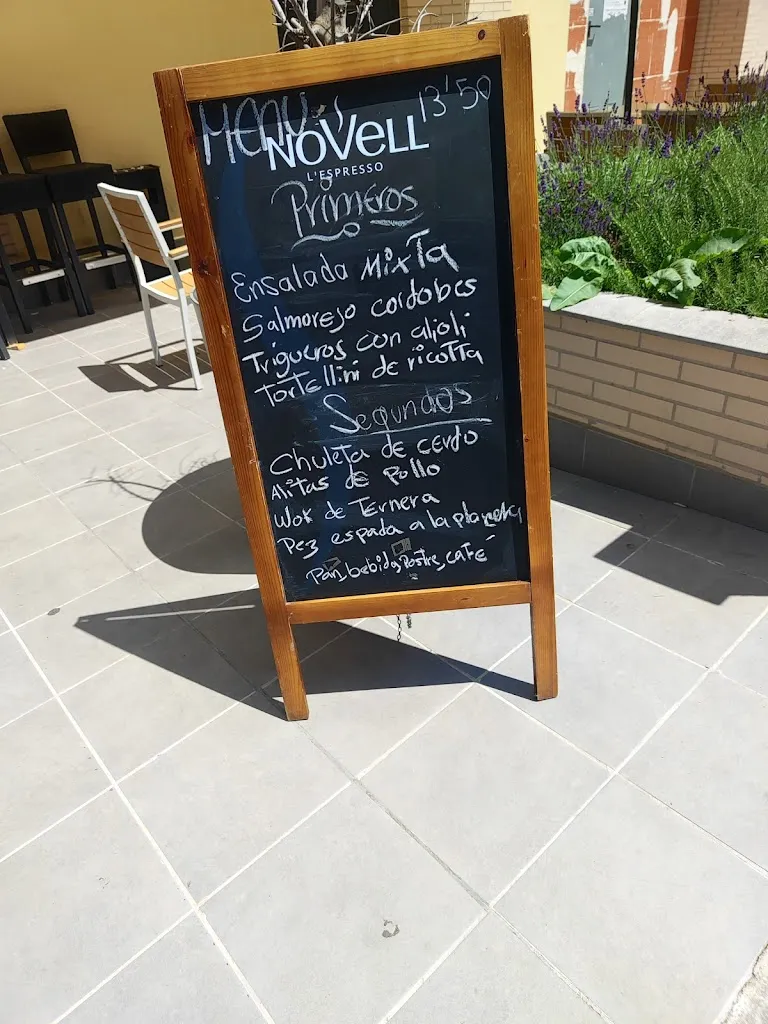 MENU 13'50
NOVELL
L'ESPRESSO
Primeros
Ensalada Mixta
Salmorejo cordobes
Trigueros con alioli
Tortellini de ricotta
Segundos
Chuleta de cerdo
Alitas de Pollo
Wok de Ternera
Pez espada a la plancha
Pan, bebida, Postre, café